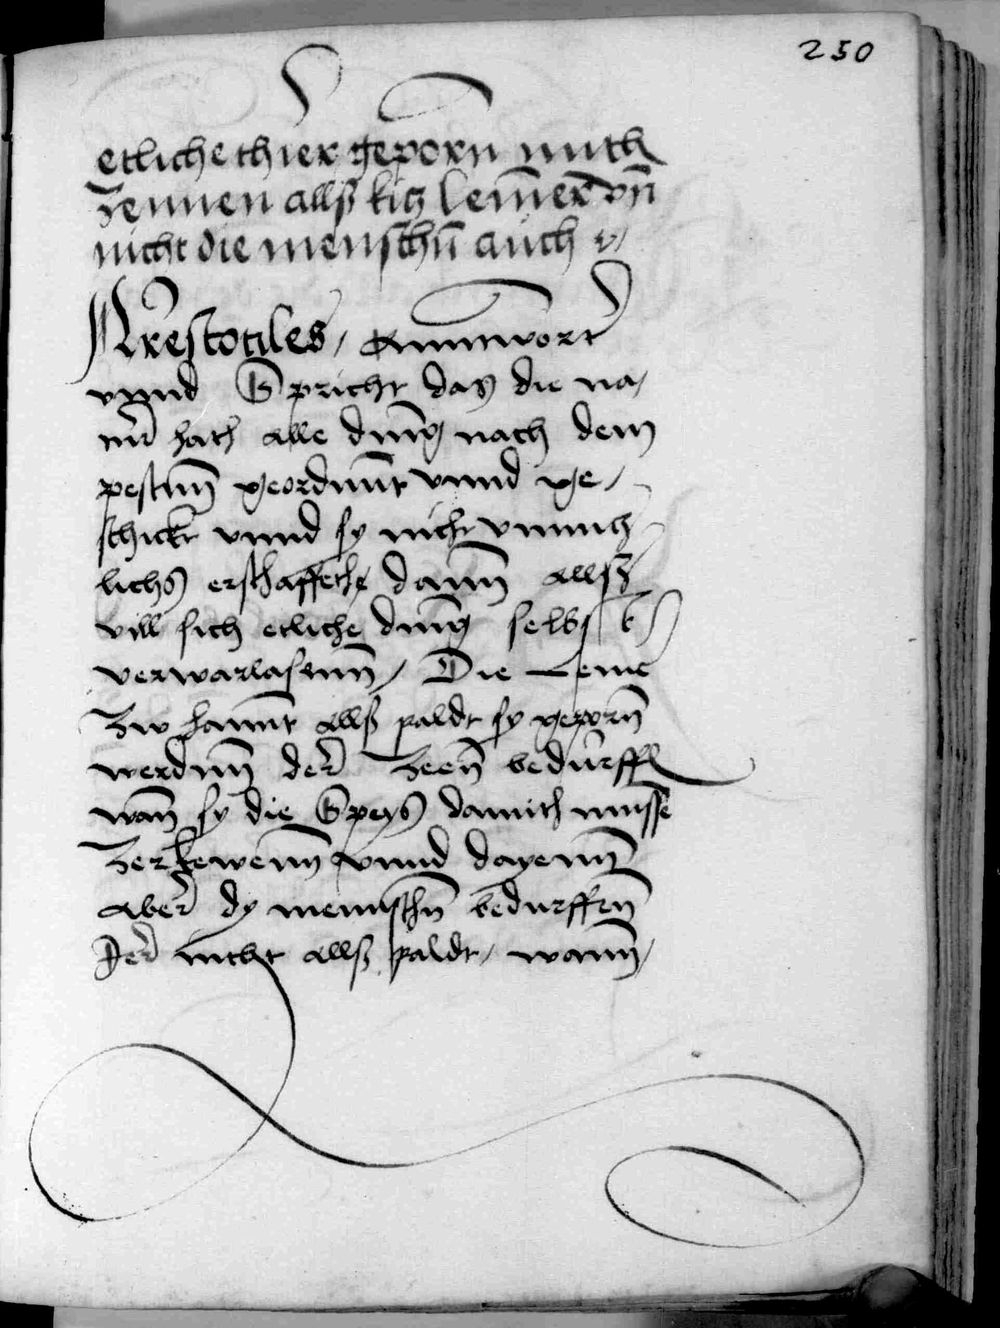 250
etliche thier geporn mith
Zennen allß kitz lem̄er vn̄
nicht die menschn̄ auch
Arestotiles / Anntwort
vnnd Spricht das die na/
tur hath alle ding nach dem
pestnn̄ geordnnt vnnd ge /
schickt vnnd sy nicht
lichs erschaffethe dann̄ allß
vill sich etliche ding selbst
verwarlasenn̄ / Die Leme
Zw hannt allß paldt sy geporn̄
werdnn̄ der Zeen̄ bedurff
wan̄ sy die Speys damith musse
Zerkewenn̄ vnnd dayenn̄
aber dy mennschn̄ bedurffen̄
Der nicht allß paldt / wann̄ /